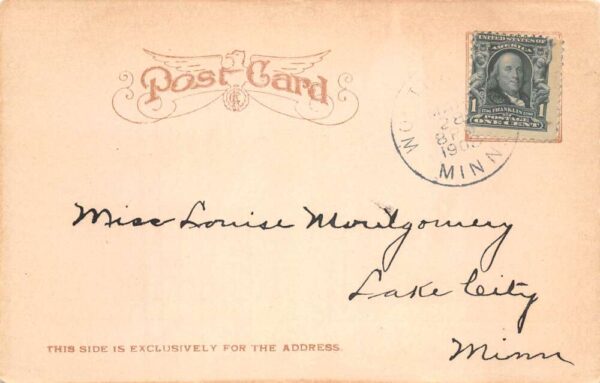 Post Card
UNITED STATES OF
AMERICA
1 FRANKLIN 1
POSTAGE
ONE CENT
28
MINN
Miss Louise Montgomery
Lake City
Minn
THIS SIDE IS EXCLUSIVELY FOR THE ADDRESS.